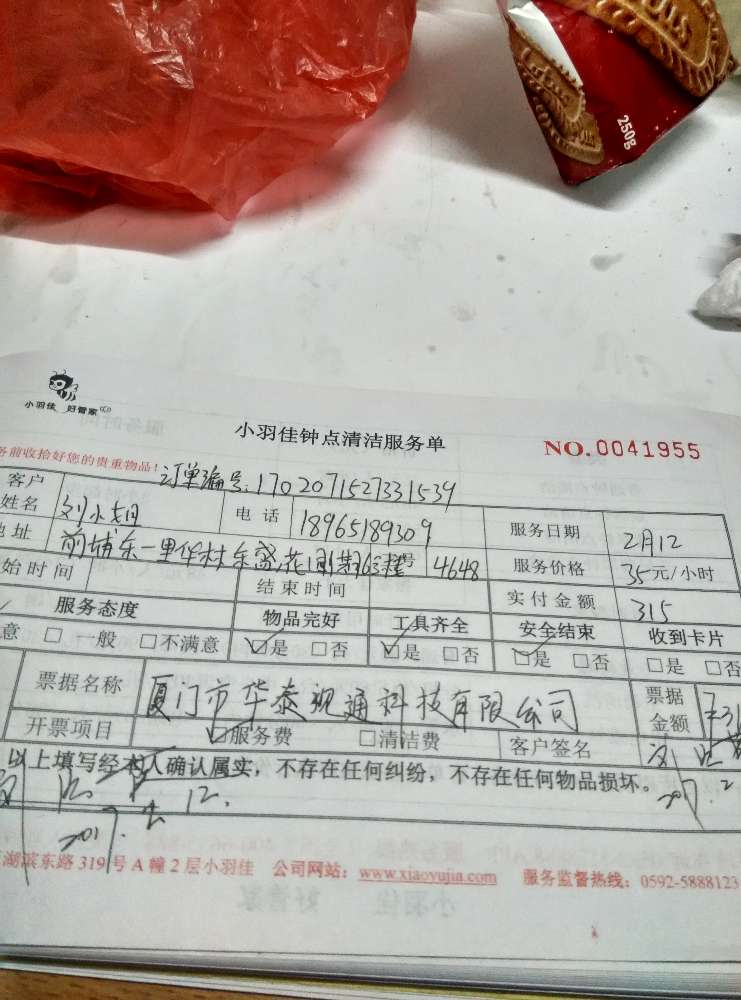 250g
小羽佳 好管家
小羽佳钟点清洁服务单
NO.0041955
务前收拾好您的贵重物品!
订单编号:1702071527331539
客户
姓名
电话
18965189309
服务日期
2月12
地址
前埔东一里华林东盛花园
4648
服务价格
35元/小时
始时间
结束时间
实付金额
315
服务态度
物品完好
工具齐全
安全结束
收到卡片
意 □一般 □不满意
☑是 □否
☑是 □否
☑是 □否
□是 □否
票据名称
厦门市华泰观通科技有限公司
票据
金额
开票项目
☑服务费 □清洁费
客户签名
以上填写经本人确认属实,不存在任何纠纷,不存在任何物品损坏。
2017.2
2017. 2 12.
湖滨东路319号A幢2层小羽佳 公司网站:www.xiaoyujia.com 服务监督热线:0592-5888123